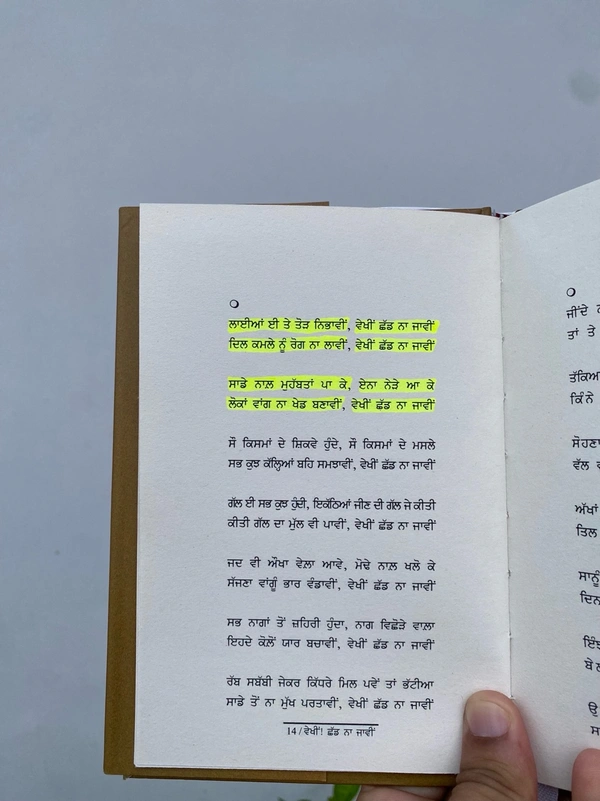 ਲਾਈਆਂ ਈ ਤੇ ਤੋੜ ਨਿਭਾਵੀਂ, ਵੇਖੀਂ ਛੱਡ ਨਾ ਜਾਵੀਂ
ਦਿਲ ਕਮਲੇ ਨੂੰ ਰੋਗ ਨਾ ਲਾਵੀਂ, ਵੇਖੀਂ ਛੱਡ ਨਾ ਜਾਵੀਂ
ਸਾਡੇ ਨਾਲ਼ ਮੁਹੱਬਤਾਂ ਪਾ ਕੇ, ਏਨਾ ਨੇੜੇ ਆ ਕੇ
ਲੋਕਾਂ ਵਾਂਗ ਨਾ ਖੇਡ ਬਣਾਵੀਂ, ਵੇਖੀਂ ਛੱਡ ਨਾ ਜਾਵੀਂ
ਸੌ ਕਿਸਮਾਂ ਦੇ ਸ਼ਿਕਵੇ ਹੁੰਦੇ, ਸੌ ਕਿਸਮਾਂ ਦੇ ਮਸਲੇ
ਸਭ ਕੁਝ ਕੱਲ੍ਹਿਆਂ ਬਹਿ ਸਮਝਾਵੀਂ, ਵੇਖੀਂ ਛੱਡ ਨਾ ਜਾਵੀਂ
ਗੱਲ ਈ ਸਭ ਕੁਝ ਹੁੰਦੀ, ਇਕੱਠਿਆਂ ਜੀਣ ਦੀ ਗੱਲ ਜੇ ਕੀਤੀ
ਕੀਤੀ ਗੱਲ ਦਾ ਮੁੱਲ ਵੀ ਪਾਵੀਂ, ਵੇਖੀਂ ਛੱਡ ਨਾ ਜਾਵੀਂ
ਜਦ ਵੀ ਔਖਾ ਵੇਲ਼ਾ ਆਵੇ, ਮੋਢੇ ਨਾਲ਼ ਖਲੋ ਕੇ
ਸੱਜਣਾ ਵਾਂਗੂੰ ਭਾਰ ਵੰਡਾਵੀਂ, ਵੇਖੀਂ ਛੱਡ ਨਾ ਜਾਵੀਂ
ਸਭ ਨਾਗਾਂ ਤੋਂ ਜ਼ਹਿਰੀ ਹੁੰਦਾ, ਨਾਗ ਵਿਛੋੜੇ ਵਾਲ਼ਾ
ਇਹਦੇ ਕੋਲ਼ੋਂ ਯਾਰ ਬਚਾਵੀਂ, ਵੇਖੀਂ ਛੱਡ ਨਾ ਜਾਵੀਂ
ਰੱਬ ਸਬੱਬੀ ਜੇਕਰ ਕਿੱਧਰੇ ਮਿਲ ਪਵੇਂ ਤਾਂ ਭੱਟੀਆ
ਸਾਡੇ ਤੋਂ ਨਾ ਮੁੱਖ ਪਰਤਾਵੀਂ, ਵੇਖੀਂ ਛੱਡ ਨਾ ਜਾਵੀਂ
14/ਵੇਖੀਂ! ਛੱਡ ਨਾ ਜਾਵੀਂ
ਜੀਂਦੇ
ਤਾਂ ਤੇ
ਕਿੰਨੇ
ਵੱਲ
ਤਿਲ